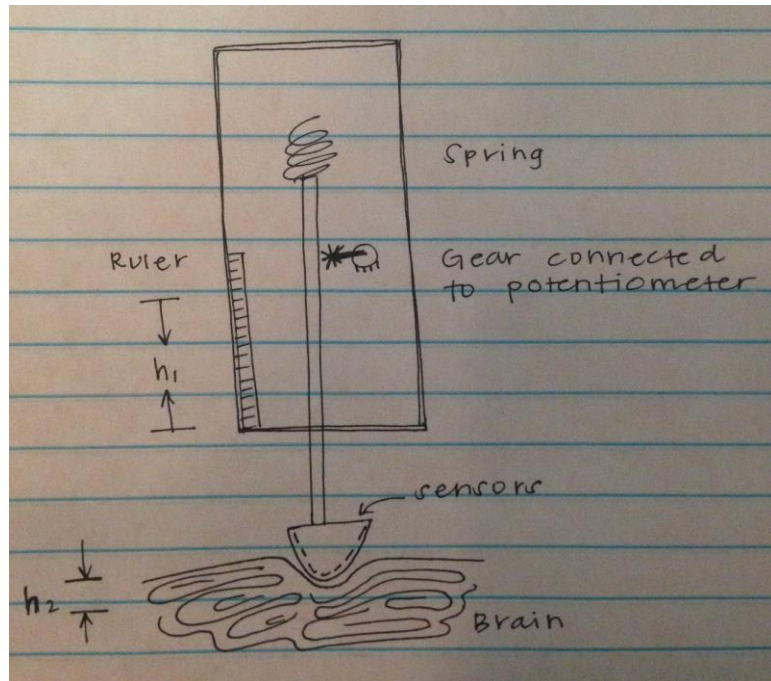 Spring
Ruler
Gear connected
to potentiometer
h1
sensors
h2
Brain